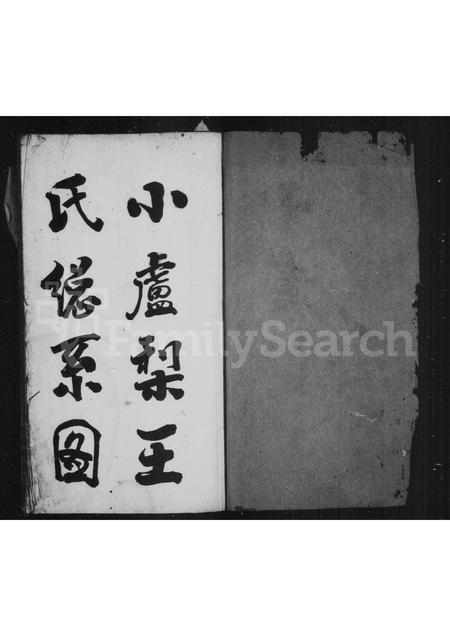 小盧梨王
氏總系图
FamilySearch